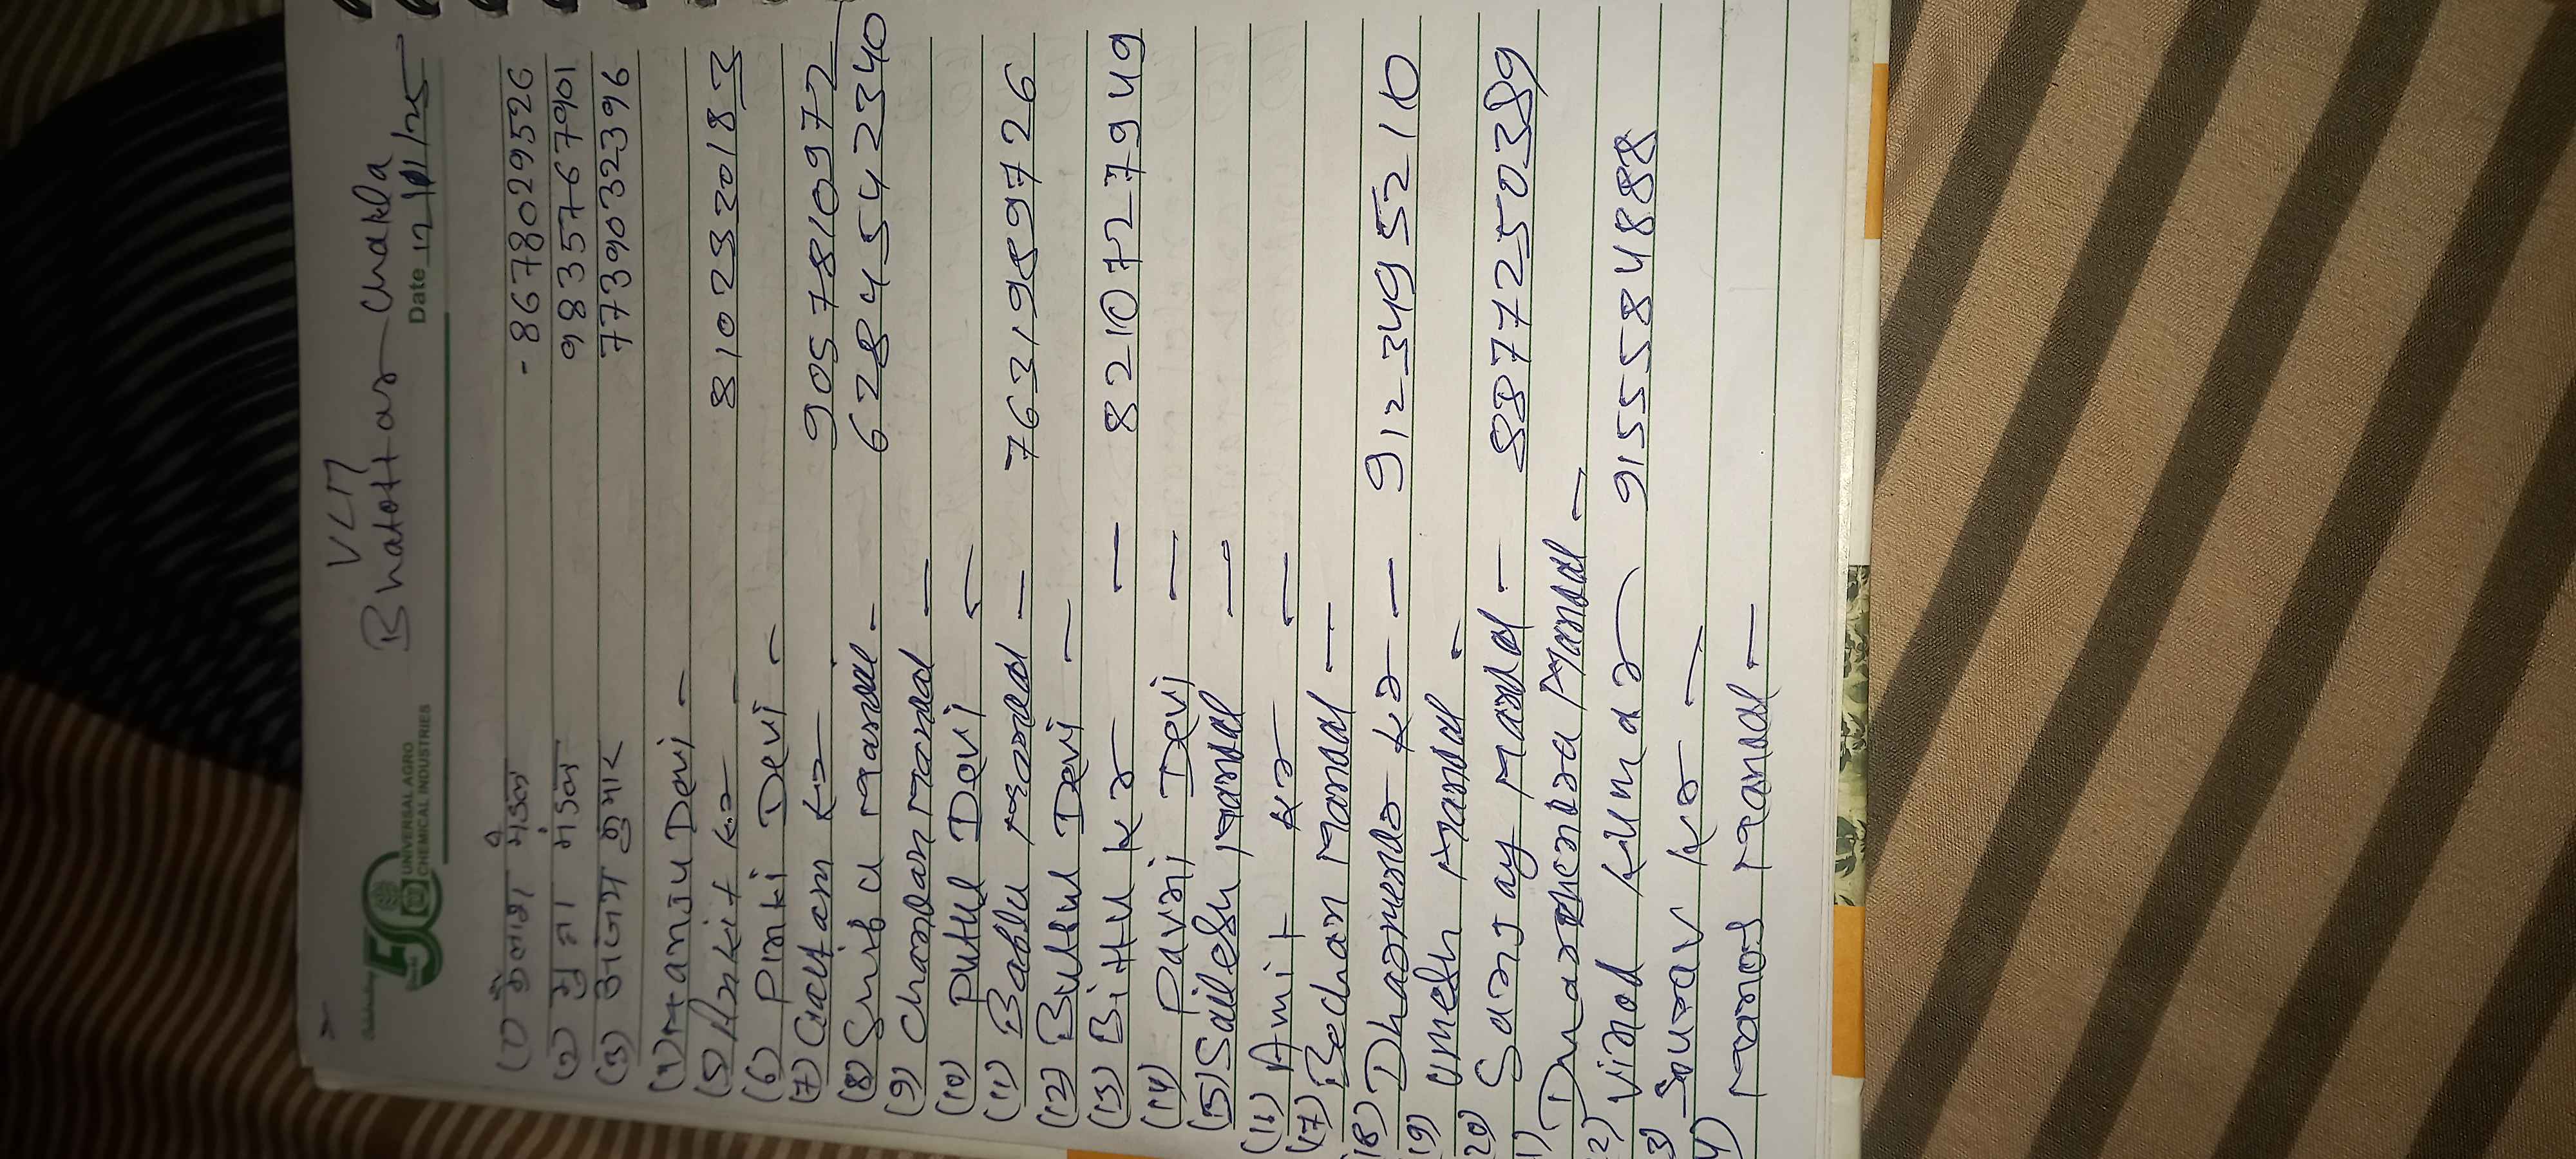 VLM
Bhatottar chakla
Celebrating
50
UNIVERSAL AGRO
CHEMICAL INDUSTRIES
Date 12/11/25
(1) कैलाश मंडल - 8678029526
(2) मुन्ना मंडल 9835767901
(3) अजय कुमार 7739032396
(4) Manju Devi -
(5) Ankit Kr - 8102320183
(6) Pinki Devi -
(7) Gautam Kr 9057810972
(8) Mandal - 6284542340
(9) Chandan Mandal -
(10) Putul Devi -
(11) Bablu Mandal - 7631989726
(12) Bulbul Devi -
(13) Bittu Kr - 8210727949
(14) Pavni Devi -
(15) Sailesh Mandal -
(16) Amit Kr -
(17) Bechan Mandal -
(18) Dharmendr Kr - 9123495210
19) Umesh Mandal -
20) Sanjay Mandal - 8877250389
1) Mandal -
2) Vinod Kumar 9155584888
3) Sourav Kr -
4) Manoj Mandal -